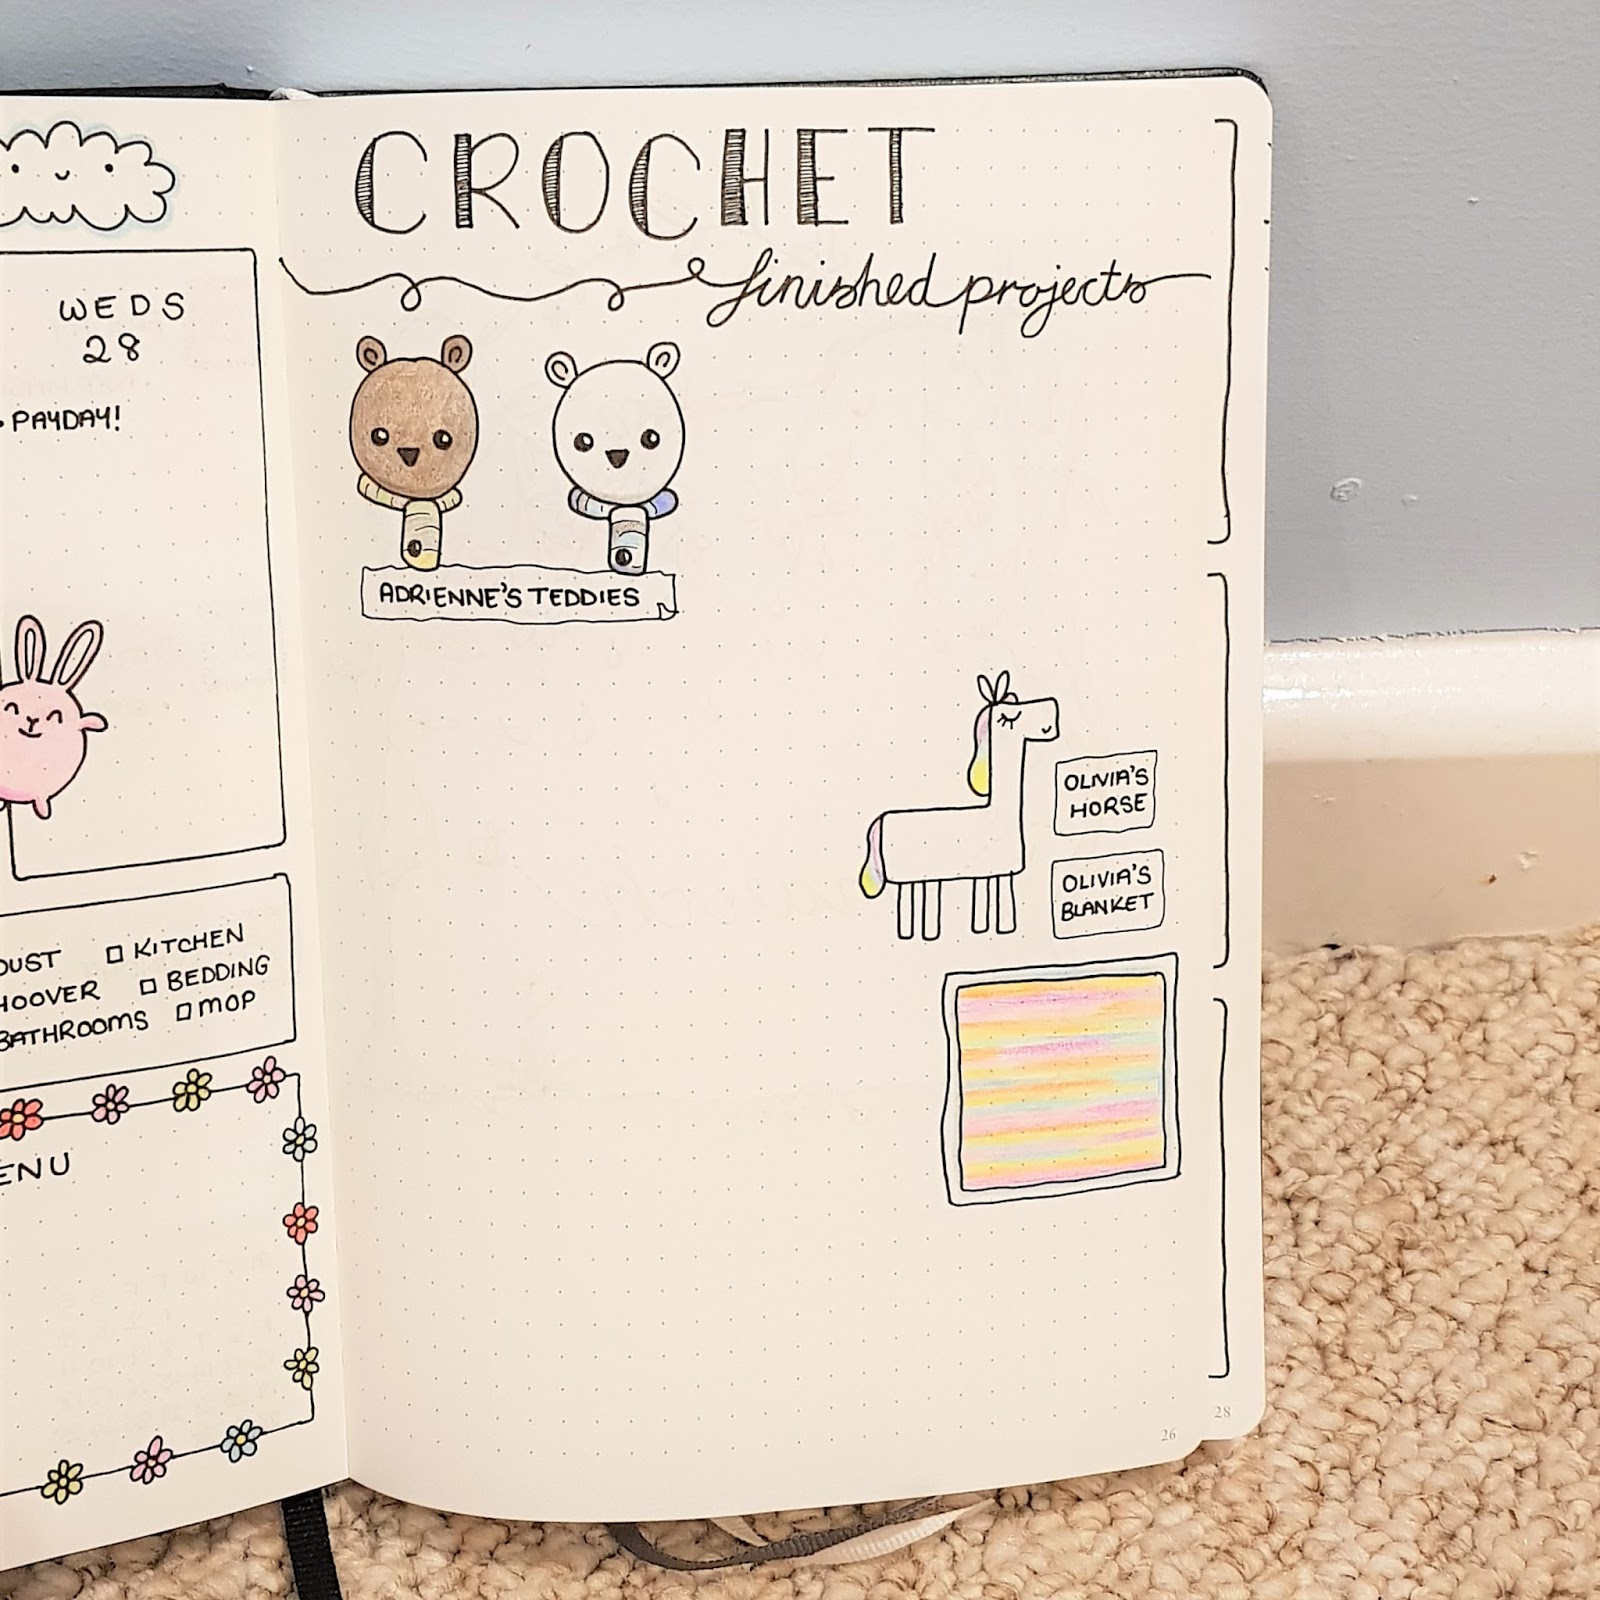 WEDS
28
• PAYDAY!
KITCHEN
HOOVER BEDDING
BATHROOMS MOP
CROCHET
finished projects
ADRIENNE'S TEDDIES
OLIVIA'S
HORSE
OLIVIA'S
BLANKET
28
26